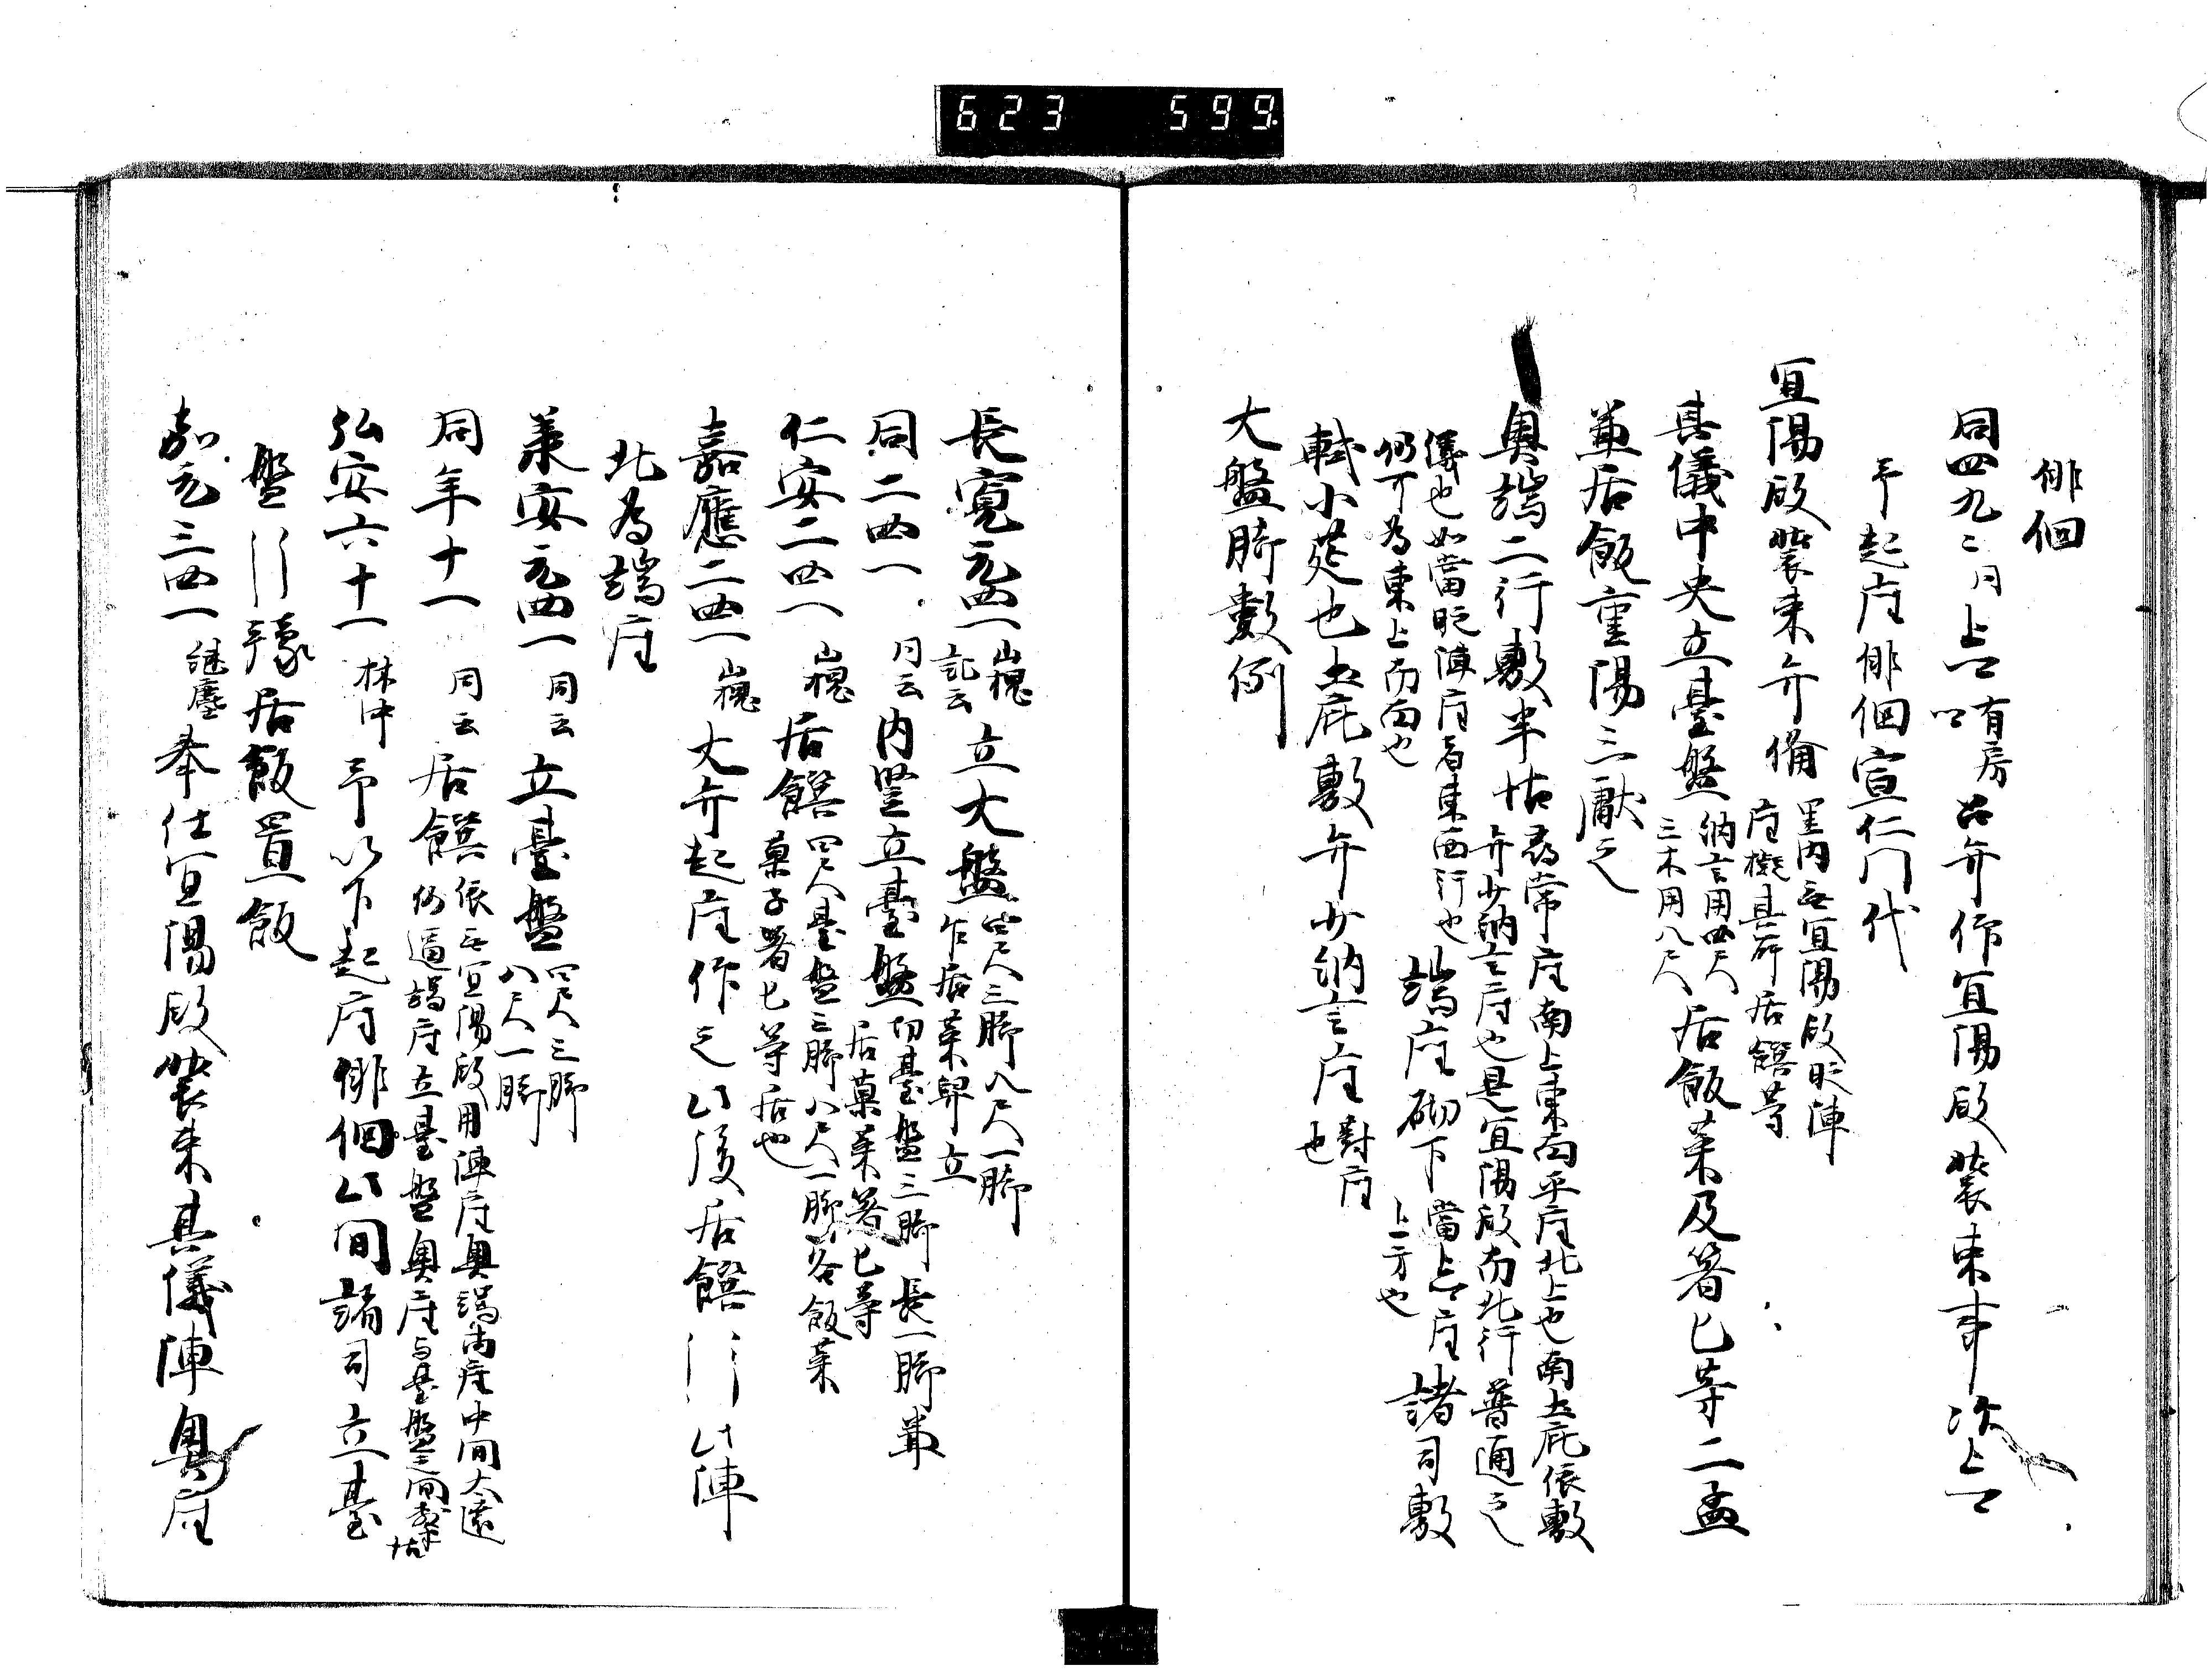 623 599
俳佪
同四九二月上口有房召弁作宜陽殿装束事次上口以
予起座俳佪宣仁門代
宜陽殿装束弁備里内無宜陽殿、陣座擬其所居饌等
其儀中央立臺盤納言用四尺三木用八尺居飯菜及箸匕等二孟
兼居飯重陽三献之
奥端二行敷半帖尋常座南上東面平座北上也南土庇依敷弁少納言座也是宜陽殿南北行普通之
儀也如當陣座者東西行也仍可為東上南面也端座砌下當上座上方也諸司敷
軾小莚也土庇敷弁少納言座對座也
大盤脚數例
長寛元四一山槐記云立大盤四尺三脚八尺一脚乍居菜舁立
同二四一同云内竪立臺盤切臺盤三脚長一脚兼居菓菜箸匕等
仁安二四一山槐居饌四尺臺盤三脚八尺一脚各飯菜菓子箸匕等居也
嘉應二四一山槐大弁起座作之此後居饌此陣
北為端座
承安元四一同云立臺盤四尺三脚八尺一脚
同年十一同云居饌依無宜陽殿用陣座奥端両座中間太遠仍逼端座立臺盤奥座与臺盤之間
弘安六十一林中予以下起座俳佪此間諸司立臺
盤予豫居飯置飯
嘉元三四一継塵奉仕宜陽殿装束其儀陣奥座